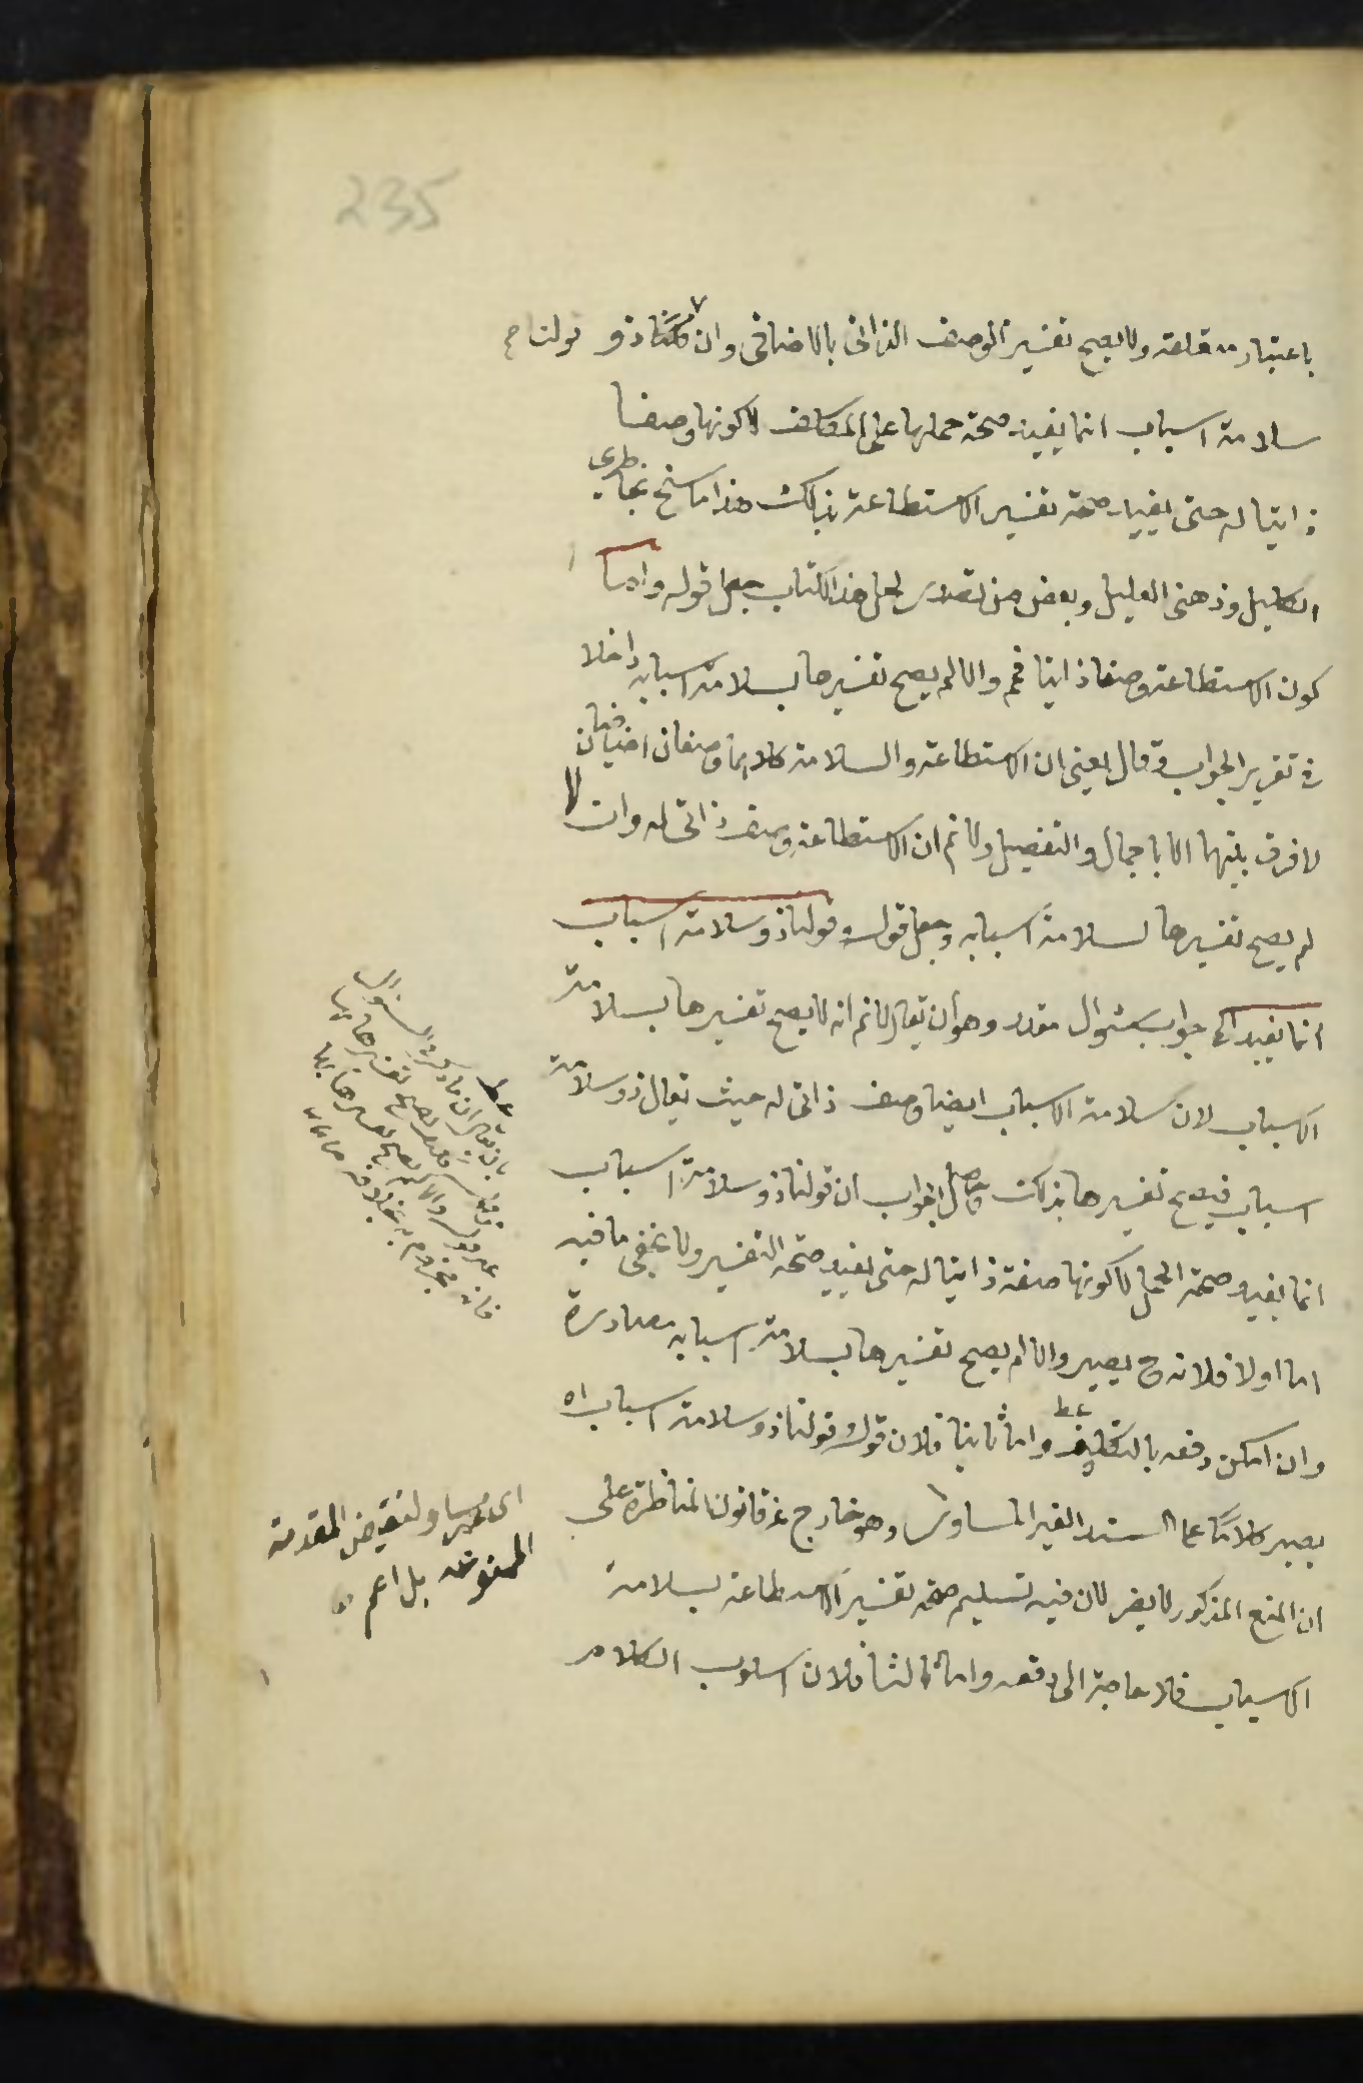 235
باعتبار متعلقه ولا يصح تفسير الوصف الذاتى بالاضافى وان قولنا ذو
سلامة اسباب انما يفيد صحة حملها على المكلف لا كونها وصفا
ذاتيا له حتى يفيد صحة تفسير الاستطاعة بذلك هذا ما سنح بخاطرى
الكليل وذهنى العليل وبعض من تصدى لحل هذا الكتاب جعل قوله واما
كون الاستطاعة وصفا ذاتيا فمم والا لم يصح تفسيرها بسلامة اسبابه داخلا
فى تقرير الجواب وقال يعنى ان الاستطاعة والسلامة كلاهما وصفان اضافيان
لا فرق بينهما الا بالاجمال والتفصيل ولا نم ان الاستطاعة وصف ذاتى له وان لا
لم يصح تفسيرها بسلامة اسبابه وجعل قوله وقولنا ذو سلامة اسباب
انما يفيد الخ جواب سئوال مقدر وهو ان يقال لا نم انه لا يصح تفسيرها بسلامة
الاسباب لان سلامة الاسباب ايضا وصف ذاتى له حيث يقال ذو سلامة
اسباب فيصح تفسيرها بذلك وحاصل الجواب ان قولنا ذو سلامة اسباب
انما يفيد صحة الحمل لا كونها صفة ذاتيا له حتى يفيد صحة التفسير ولا يخفى ما فيه
اما اولا فلانه ح يصير والا لم يصح تفسيرها بسلامة اسبابه مصادرة
وان امكن دفعه بالتكلف واما ثانيا فلان قوله وقولنا ذو سلامة اسباب اه
يصير كلاما على السند الغير المساوى وهو خارج عن قانون المناظرة على
ان المنع المذكور لا يضر لان فيه تسليم صحة تفسير الاستطاعة بسلامة
الاسباب فلا حاجة الى دفعه واما ثالثا فلان اسلوب الكلام
اى غير مساو لنقيض المقدمة
الممنوعة بل اعم